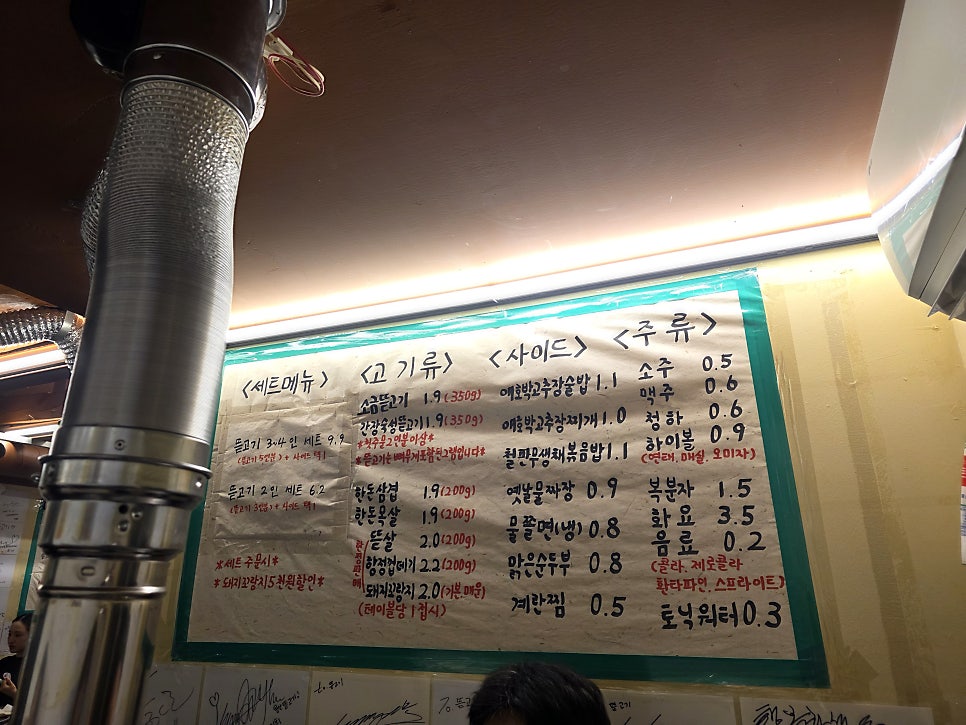 <세트메뉴>
뜯고기 3~4인 세트 9.9
(뜯고기 5인분) + 사이드 택1
뜯고기 2인 세트 6.2
(뜯고기 3인분) + 사이드 택1
*세트 주문시*
*돼지꼬랑지 5천원할인*
<고기류>
소금뜯고기 1.9 (350g)
간장숙성뜯고기 1.9 (350g)
*첫주문 2인분 이상*
*뜯고기는 뼈무게 포함된 그램입니다*
한돈삼겹 1.9 (200g)
한돈목살 1.9 (200g)
뜯살 2.0 (200g)
항정껍데기 2.2 (200g)
돼지꼬랑지 2.0 (기본 매운)
한정판매
(테이블당 1접시)
<사이드>
애호박고추장술밥 1.1
애호박고추장찌개 1.0
철판무생채볶음밥 1.1
옛날물짜장 0.9
물쫄면(냉) 0.8
맑은순두부 0.8
계란찜 0.5
<주류>
소주 0.5
맥주 0.6
청하 0.6
하이볼 0.9
(연태, 매실, 오미자)
복분자 1.5
화요 3.5
음료 0.2
(콜라, 제로콜라
환타파인, 스프라이트)
토닉워터 0.3